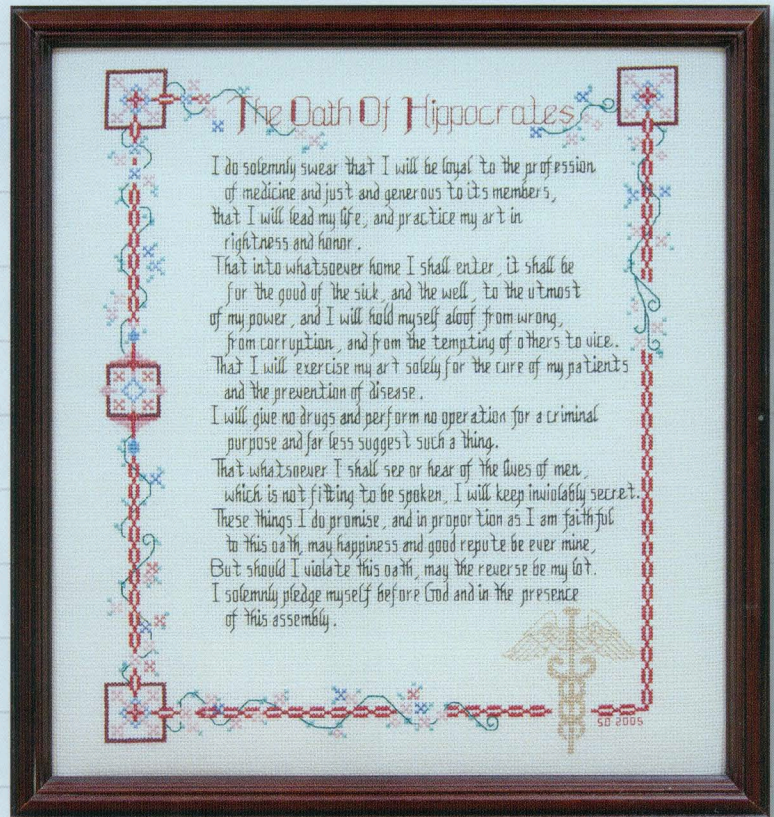 The Oath Of Hippocrates
I do solemnly swear that I will be loyal to the profession
of medicine and just and generous to its members,
that I will lead my life, and practice my art in
rightness and honor.
That into whatsoever home I shall enter, it shall be
for the good of the sick, and the well, to the utmost
of my power, and I will hold myself aloof from wrong,
from corruption, and from the tempting of others to vice.
That I will exercise my art solely for the cure of my patients
and the prevention of disease.
I will give no drugs and perform no operation for a criminal
purpose and far less suggest such a thing.
That whatsoever I shall see or hear of the lives of men,
which is not fitting to be spoken, I will keep inviolably secret.
These things I do promise, and in proportion as I am faithful
to this oath, may happiness and good repute be ever mine,
But should I violate this oath, may the reverse be my lot.
I solemnly pledge myself before God and in the presence
of this assembly.
SD 2005